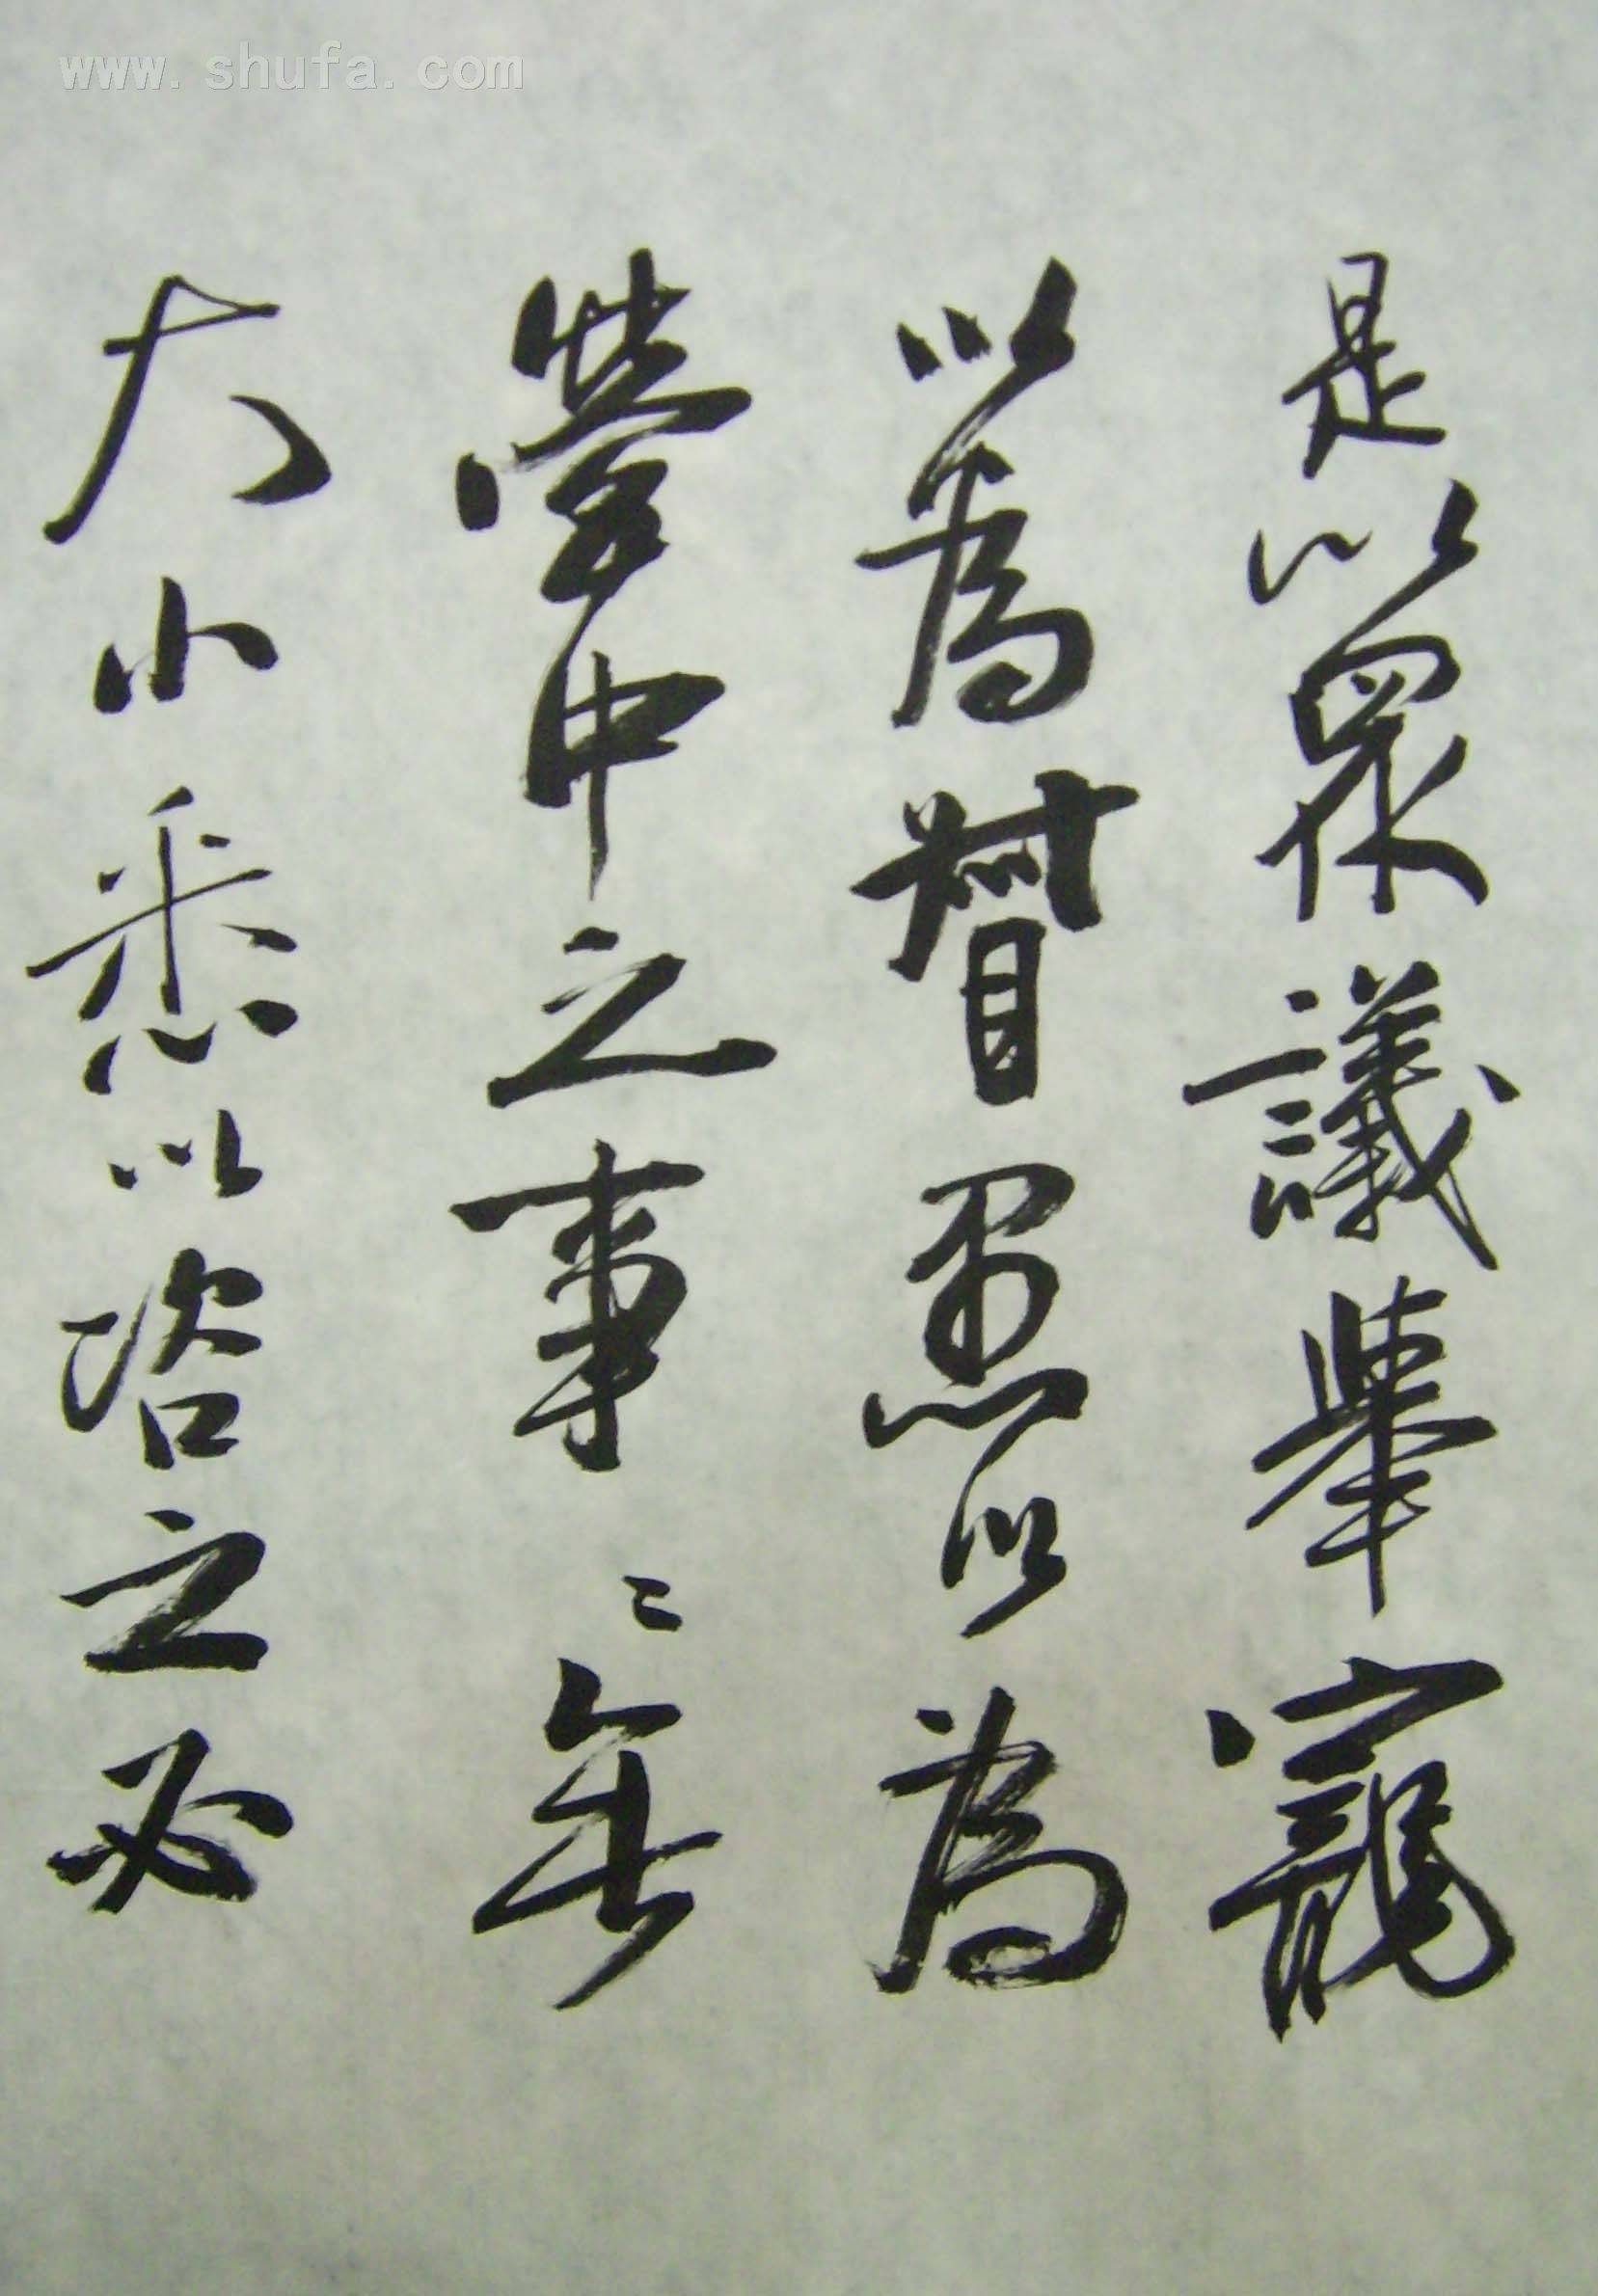 www.shufa.com
是以眾議舉寵
以為督愚以為
營中之事〻無
大小悉以咨之必